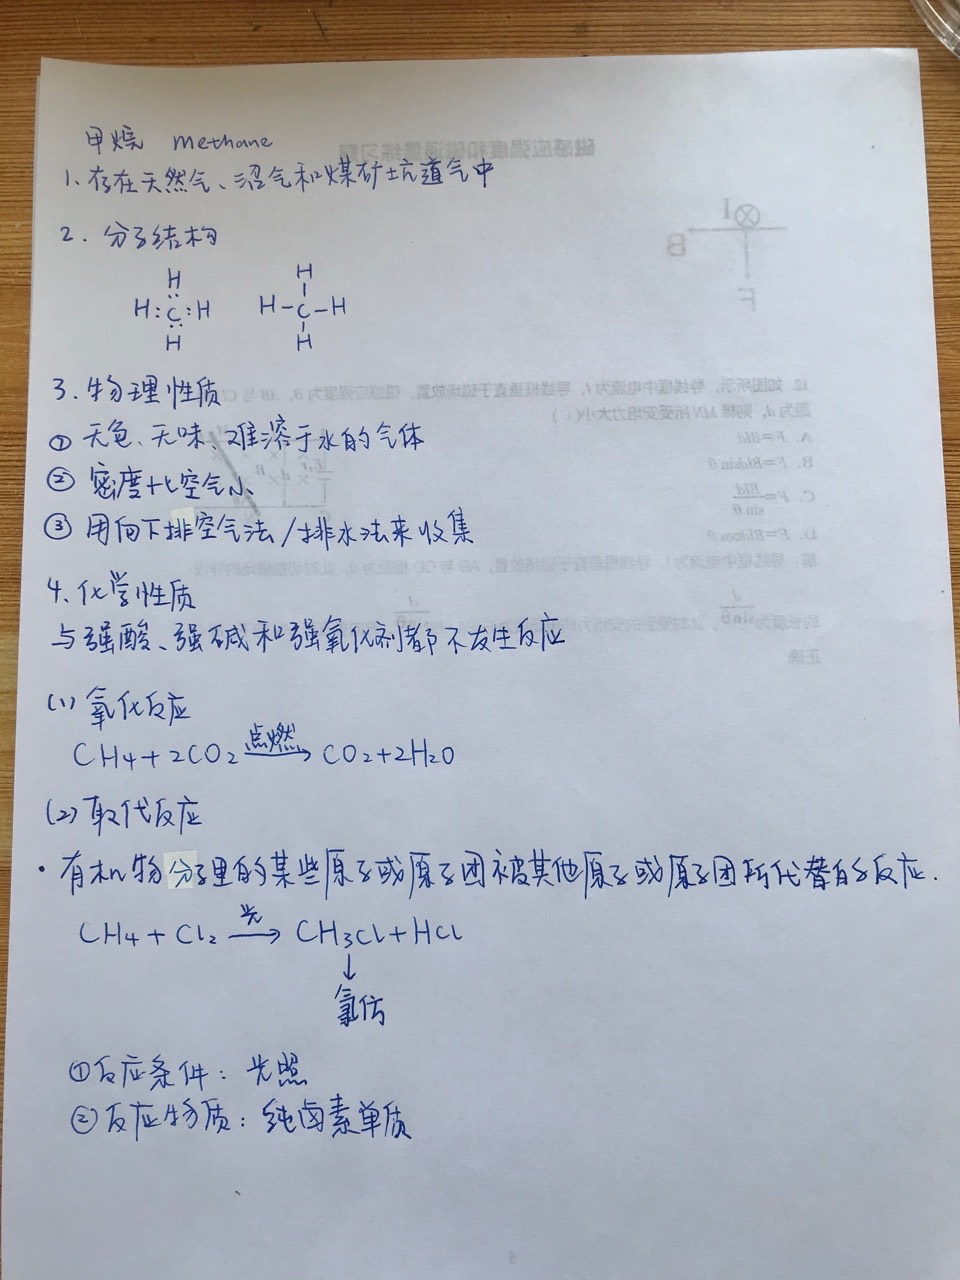 甲烷 methane
1.存在天然气、沼气和煤矿坑道气中
2.分子结构
H H
H:C:H H-C-H
H H
3.物理性质
① 无色、无味、难溶于水的气体
② 密度比空气小
③ 用向下排空气法/排水法来收集
4.化学性质
与强酸、强碱和强氧化剂都不发生反应
(1)氧化反应
CH4+2CO2 点燃→ CO2+2H2O
(2)取代反应
·有机物分子里的某些原子或原子团被其他原子或原子团所代替的反应.
CH4+Cl2 光→ CH3Cl+HCl
↓
氯仿
①反应条件:光照
②反应物质:纯卤素单质